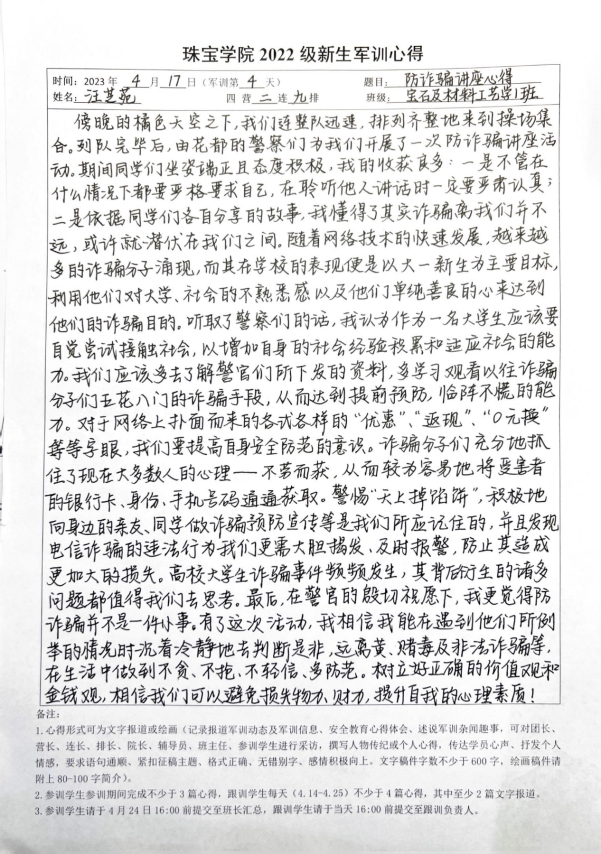 珠宝学院 2022 级新生军训心得
时间：2023 年 4 月 17 日（军训第 4 天） 题目：防诈骗讲座心得
姓名：汪芝苑 四 营 二 连 九 排 班级：宝石及材料工艺学1班
傍晚的橘色天空之下，我们连整队迅速，排列齐整地来到操场集
合。列队完毕后，由花都的警察们为我们开展了一次防诈骗讲座活
动。期间同学们坐姿端正且态度积极，我的收获良多：一是不管在
什么情况下都要严格要求自己，在聆听他人讲话时一定要严肃认真；
二是依据同学们各自分享的故事，我懂得了其实诈骗离我们并不
远，或许就潜伏在我们之间。随着网络技术的快速发展，越来越
多的诈骗分子涌现，而其在学校的表现便是以大一新生为主要目标，
利用他们对大学、社会的不熟悉感以及他们单纯善良的心来达到
他们的诈骗目的。听取了警察们的话，我认为作为一名大学生应该要
自觉尝试接触社会，以增加自身的社会经验积累和适应社会的能
力。我们应该多去了解警官们所下发的资料，多学习观看以往诈骗
分子们五花八门的诈骗手段，从而达到提前预防，临阵不慌的能
力。对于网络上扑面而来的各式各样的“优惠”、“返现”、“0元换”
等等字眼，我们要提高自身安全防范的意识。诈骗分子们充分地抓
住了现在大多数人的心理——不劳而获，从而较为容易地将受害者
的银行卡、身份、手机号码通通获取。警惕“天上掉馅饼”，积极地
向身边的亲友、同学做诈骗预防宣传等是我们所应记住的，并且发现
电信诈骗的违法行为我们更需大胆揭发、及时报警，防止其造成
更加大的损失。高校大学生诈骗事件频频发生，其背后衍生的诸多
问题都值得我们去思考。最后，在警官的殷切祝愿下，我更觉得防
诈骗并不是一件小事。有了这次活动，我相信我能在遇到他们所例
举的情况时沉着冷静地去判断是非，远离黄、赌毒及非法诈骗等，
在生活中做到不贪、不抢、不轻信、多防范。树立好正确的价值观和
金钱观，相信我们可以避免损失物力、财力，提升自我的心理素质！
备注：
1.心得形式可为文字报道或绘画（记录报道军训动态及军训信息、安全教育心得体会、述说军训杂闻趣事，可对团长、
营长、连长、排长、院长、辅导员、班主任、参训学生进行采访，撰写人物传纪或个人心得，传达学员心声、抒发个人
情感，要求语句通顺、紧扣征稿主题、格式正确、无错别字、感情积极向上。文字稿件字数不少于 600 字，绘画稿件请
附上 80-100 字简介）。
2.参训学生参训期间完成不少于 3 篇心得，跟训学生每天（4.14-4.25）不少于 4 篇心得，其中至少 2 篇文字报道。
3.参训学生请于 4 月 24 日 16:00 前提交至班长汇总，跟训学生请于当天 16:00 前提交至跟训负责人。